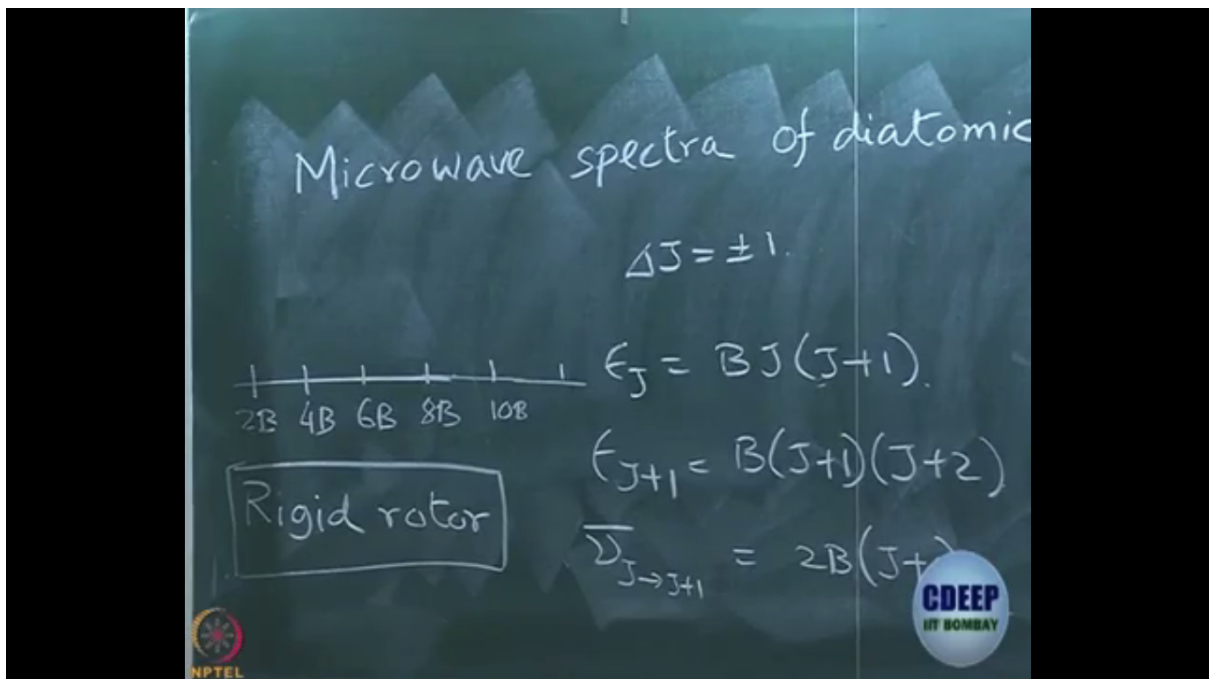 Microwave spectra of diatomic
ΔJ = ±1.
ϵ_J = BJ(J+1).
2B 4B 6B 8B 10B
ϵ_{J+1} = B(J+1)(J+2)
Rigid rotor
ν̅_{J→J+1} = 2B(J+
CDEEP
IIT BOMBAY
NPTEL